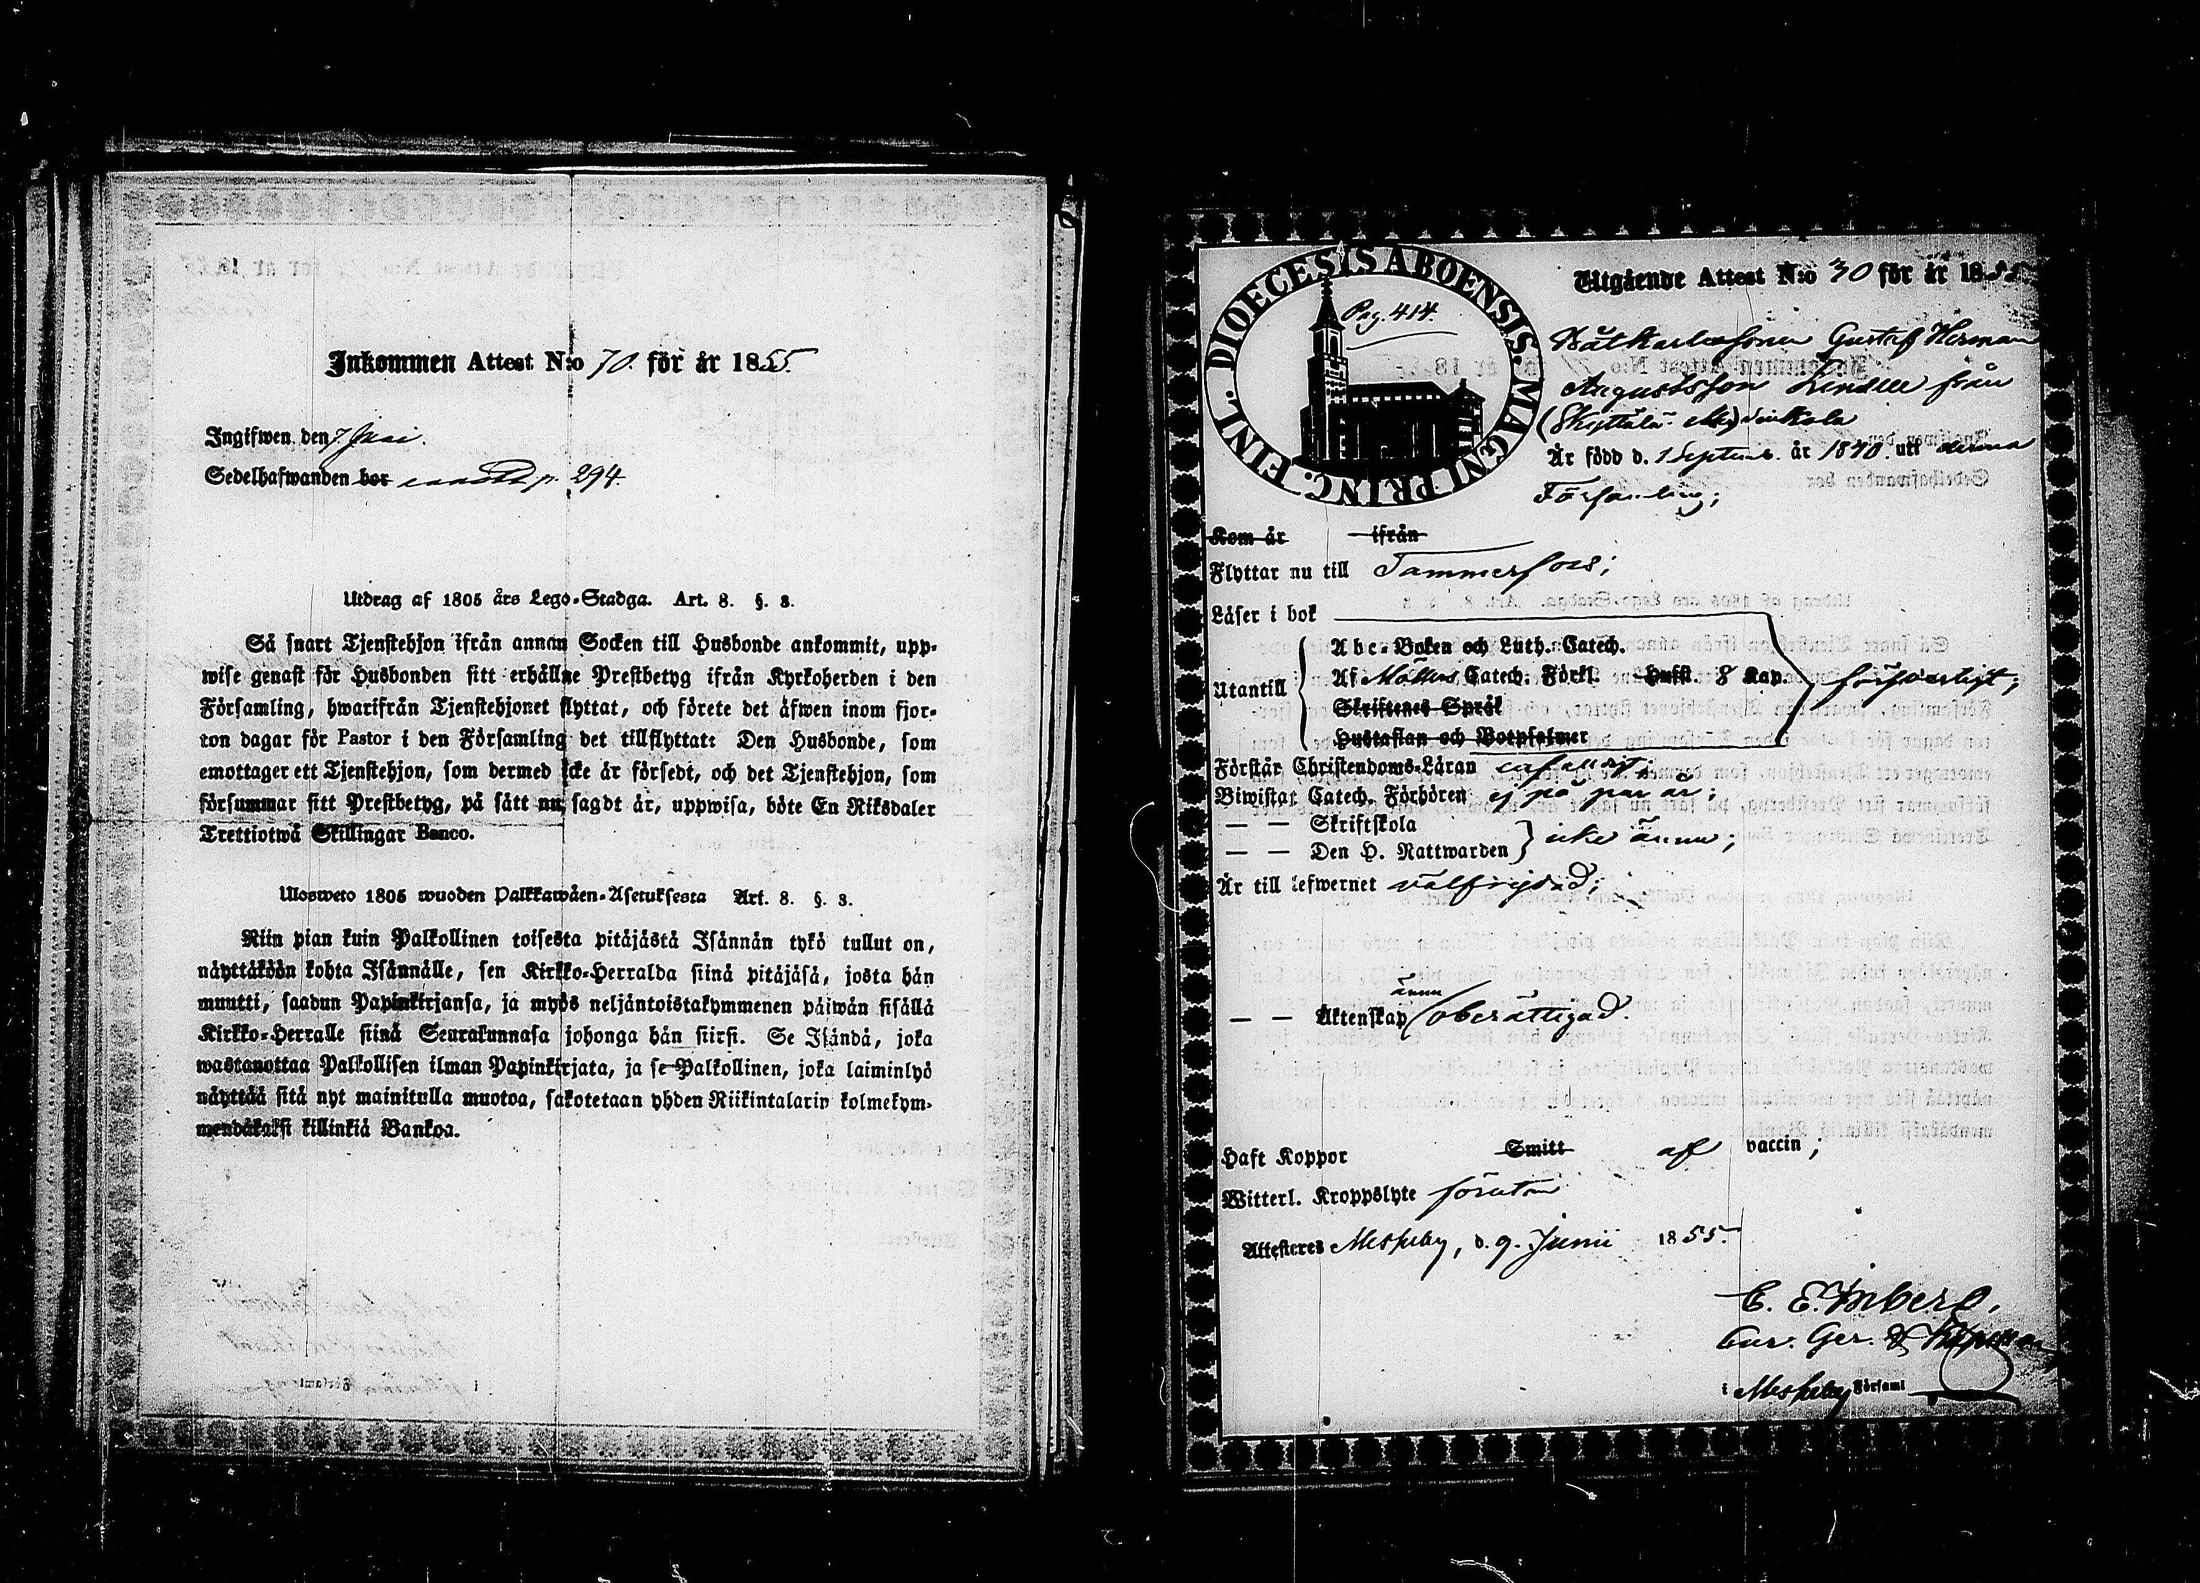 Inkommen Attest N:o 70. för år 1855.
Ingifwen den 7 Juni.
Sedelhafwanden bor p. 294.
Utdrag af 1805 års Lego-Stadga. Art. 8. §. 3.
Så snart Tjenstehjon ifrån annan Socken till Husbonde ankommit, upp-
wise genast för Husbonden sitt erhållne Prestbetyg ifrån Kyrkoherden i den
Församling, hwarifrån Tjenstehjonet flyttat, och förete det äfwen inom fjor-
ton dagar för Pastor i den Församling det tillflyttat: Den Husbonde, som
emottager ett Tjenstehjon, som dermed icke är försedt, och det Tjenstehjon, som
försummar sitt Prestbetyg, på sätt nu sagdt är, uppwisa, böte En Riksdaler
Trettiotwå Skillingar Banco.
Ulosweto 1805 wuoden Palkkawäen-Asetuksesta Art. 8. §. 3.
Niin pian kuin Palkollinen toisesta pitäjästä Isännän tykö tullut on,
näyttäköön kohta Isännälle, sen Kirkko-Herralda siinä pitäjäsä, josta hän
muutti, saadun Papinkirjansa, ja myös neljäntoistakymmenen päiwän sisällä
Kirkko-Herralle siinä Seurakunnasa johonga hän siirsi. Se Isändä, joka
wastanottaa Palkollisen ilman Papinkirjata, ja se Palkollinen, joka laiminlyö
näyttää sitä nyt mainitulla muotoa, sakotetaan yhden Riikintalarin kolmekym-
mendäkaksi killinkiä Bankoa.
DIOECESIS ABOENSIS. MAGNI PRINC. FINL.
Pag. 414.
Utgående Attest N:o 30 för år 1855
Gustaf Herman
Augustsson Lindell från
Är född d. 1 Septemb. år 1840. uti denna
Församling;
Kom år ifrån
Flyttar nu till Tammerfors;
Läser i bok
Utantill
Abc-Boken och Luth. Catech.
Af Möllers Catech. Förkl. Hufst. 8 Kap. försvarligt;
Skriftenes Språk
Hustaflan och Botpsalmer
Förstår Christendoms-Läran enfaldigt;
Biwistat Catech. Förhören ej på par år;
— — Skriftskola
— — Den H. Nattwarden icke ännu;
Är till lefwernet välfrejdad;
ännu
— — Äktenskap oberättigad.
Haft Koppor Smitt af vaccin;
Witterl. Kroppslyte förutan
Attesteras Messuby, d. 9. Junii 1855.
C. E.
Cur. Ger. & Kapellan
i Messuby Församl